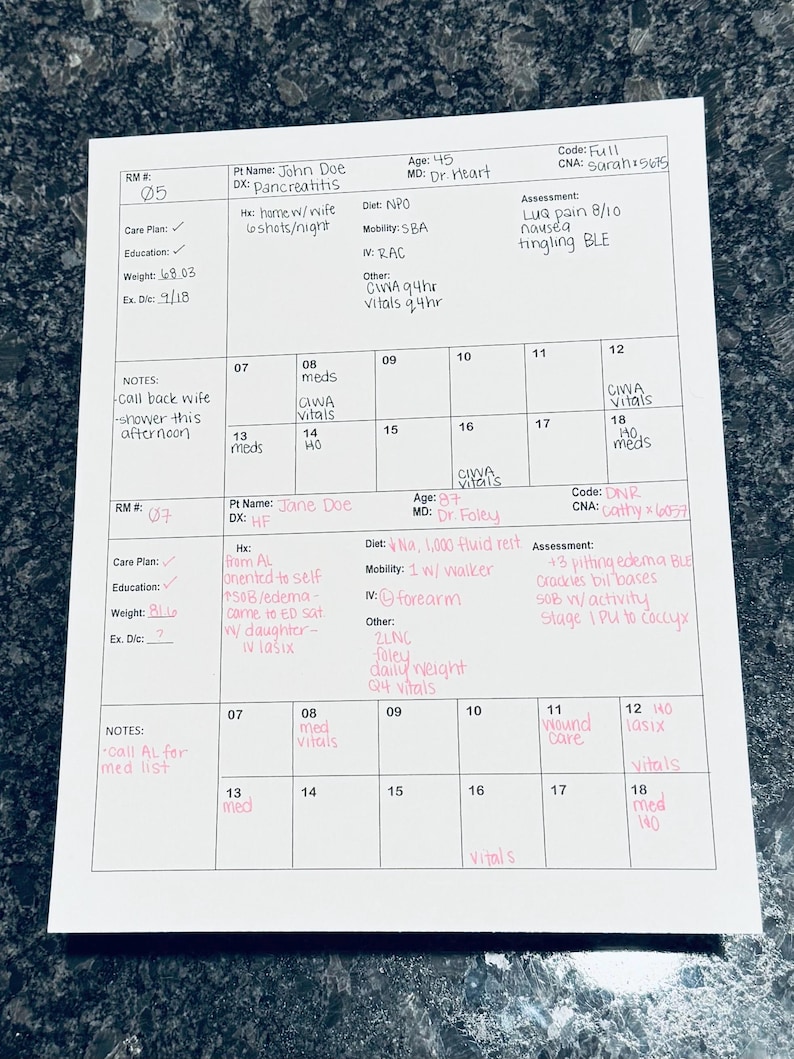 RM #: Ø5
Pt Name: John Doe Age: 45 Code: Full
DX: Pancreatitis MD: Dr. Heart CNA: Sarah x5675
Care Plan: ✓
Education: ✓
Weight: 68.03
Ex. D/c: 9/18
Hx: home w/ wife
6 shots/night
Diet: NPO
Mobility: SBA
IV: RAC
Other:
CIWA q4hr
vitals q4hr
Assessment:
LUQ pain 8/10
nausea
tingling BLE
NOTES:
-Call back wife
-shower this
afternoon
07
08
meds
CIWA
vitals
09
10
11
12
CIWA
vitals
13
meds
14
I+O
15
16
CIWA
vitals
17
18
I+O
meds
RM #: Ø7
Pt Name: Jane Doe Age: 87 Code: DNR
DX: HF MD: Dr. Foley CNA: Cathy x6037
Care Plan: ✓
Education: ✓
Weight: 81.6
Ex. D/c: ?
Hx:
from AL
oriented to self
↑SOB/edema -
came to ED sat.
w/ daughter -
IV lasix
Diet: ↓Na, 1,000 fluid rest.
Mobility: 1 w/ walker
IV: Ⓛ forearm
Other:
2LNC
foley
daily weight
Q4 vitals
Assessment:
+3 pitting edema BLE
crackles bil bases
SOB w/ activity
Stage 1 PU to coccyx
NOTES:
·call AL for
med list
07
08
med
vitals
09
10
11
wound
care
12 I+O
lasix
vitals
13
med
14
15
16
vitals
17
18
med
I+O